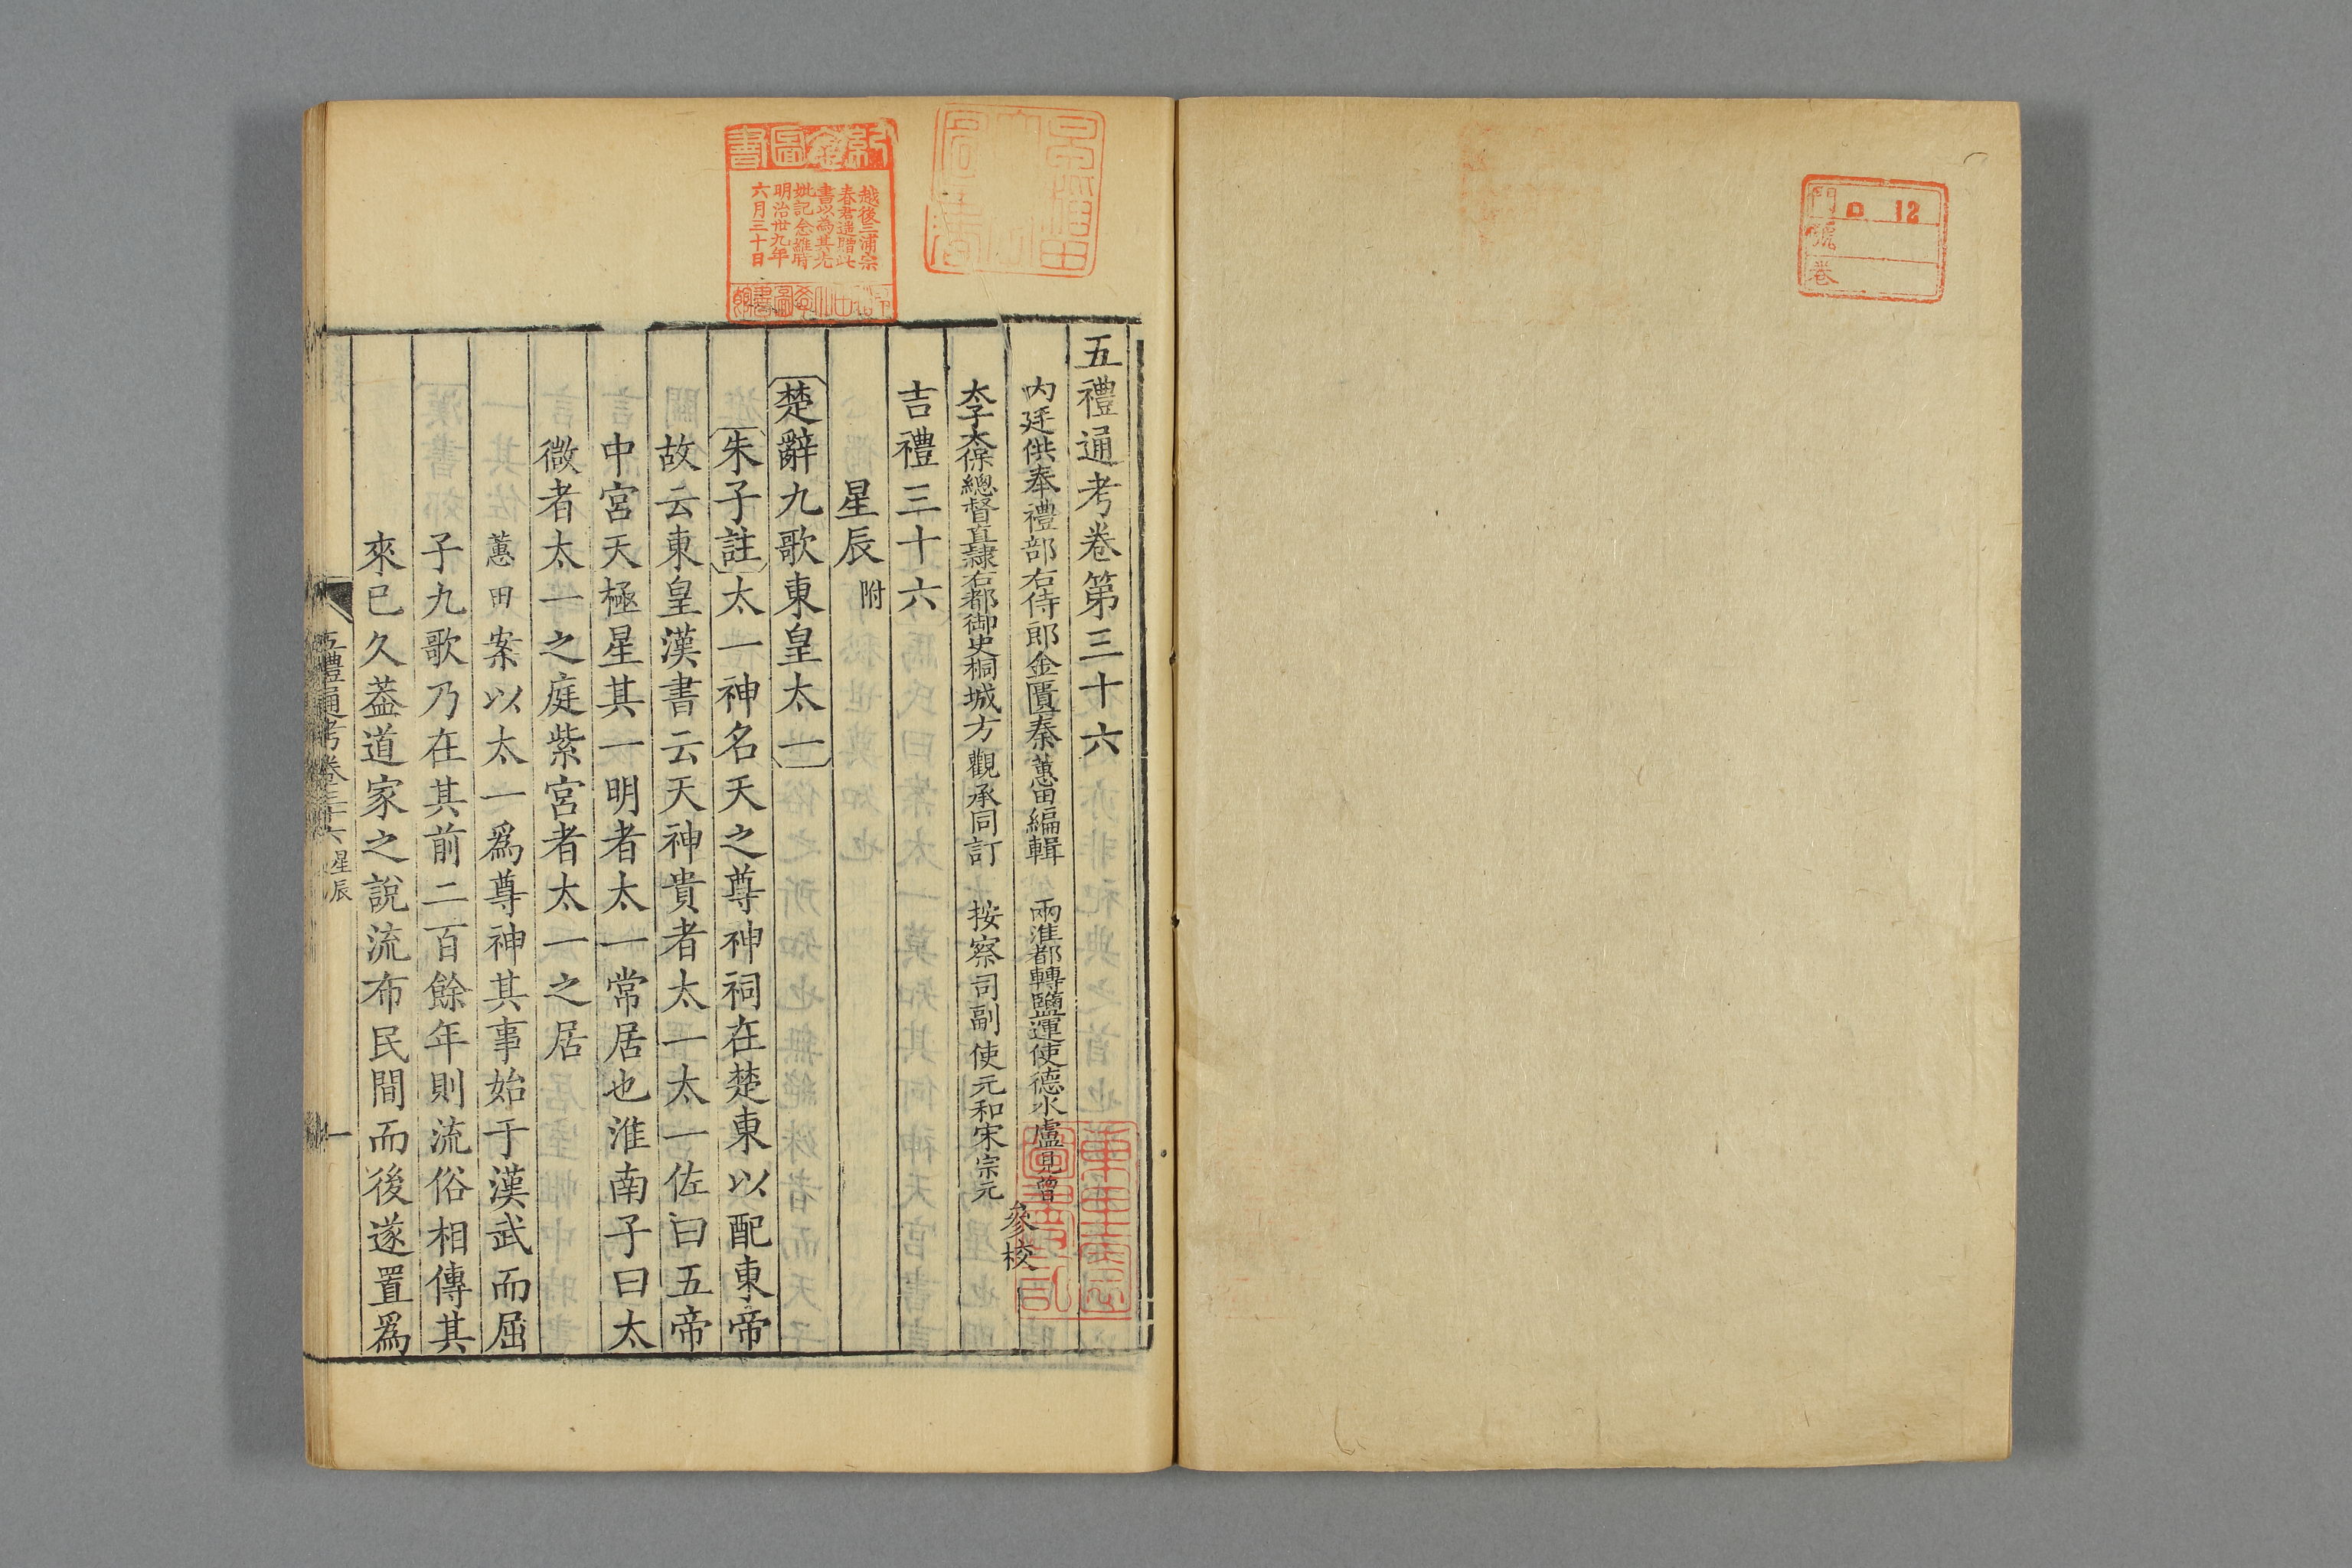 五禮通考卷第三十六
内廷供奉禮部右侍郎金匱秦蕙田編輯 兩淮都轉鹽運使德水盧見曾
太子太保總督直隸右都御史桐城方觀承同訂 按察司副使元和宋宗元
參校
吉禮三十六
星辰附
楚辭九歌東皇太一
朱子註太一神名天之尊神祠在楚東以配東帝
故云東皇漢書云天神貴者太一太一佐曰五帝
中宮天極星其一明者太一常居也淮南子曰太
微者太一之庭紫宮者太一之居
蕙田案以太一爲尊神其事始于漢武而屈
子九歌乃在其前二百餘年則流俗相傳其
來已久葢道家之說流布民間而後遂置爲
五禮通考卷三十六 星辰
一
越後三浦宗
春君遥贈此
書以為其先
妣記念維時
明治卅九年
六月三十日
門 12
號
卷